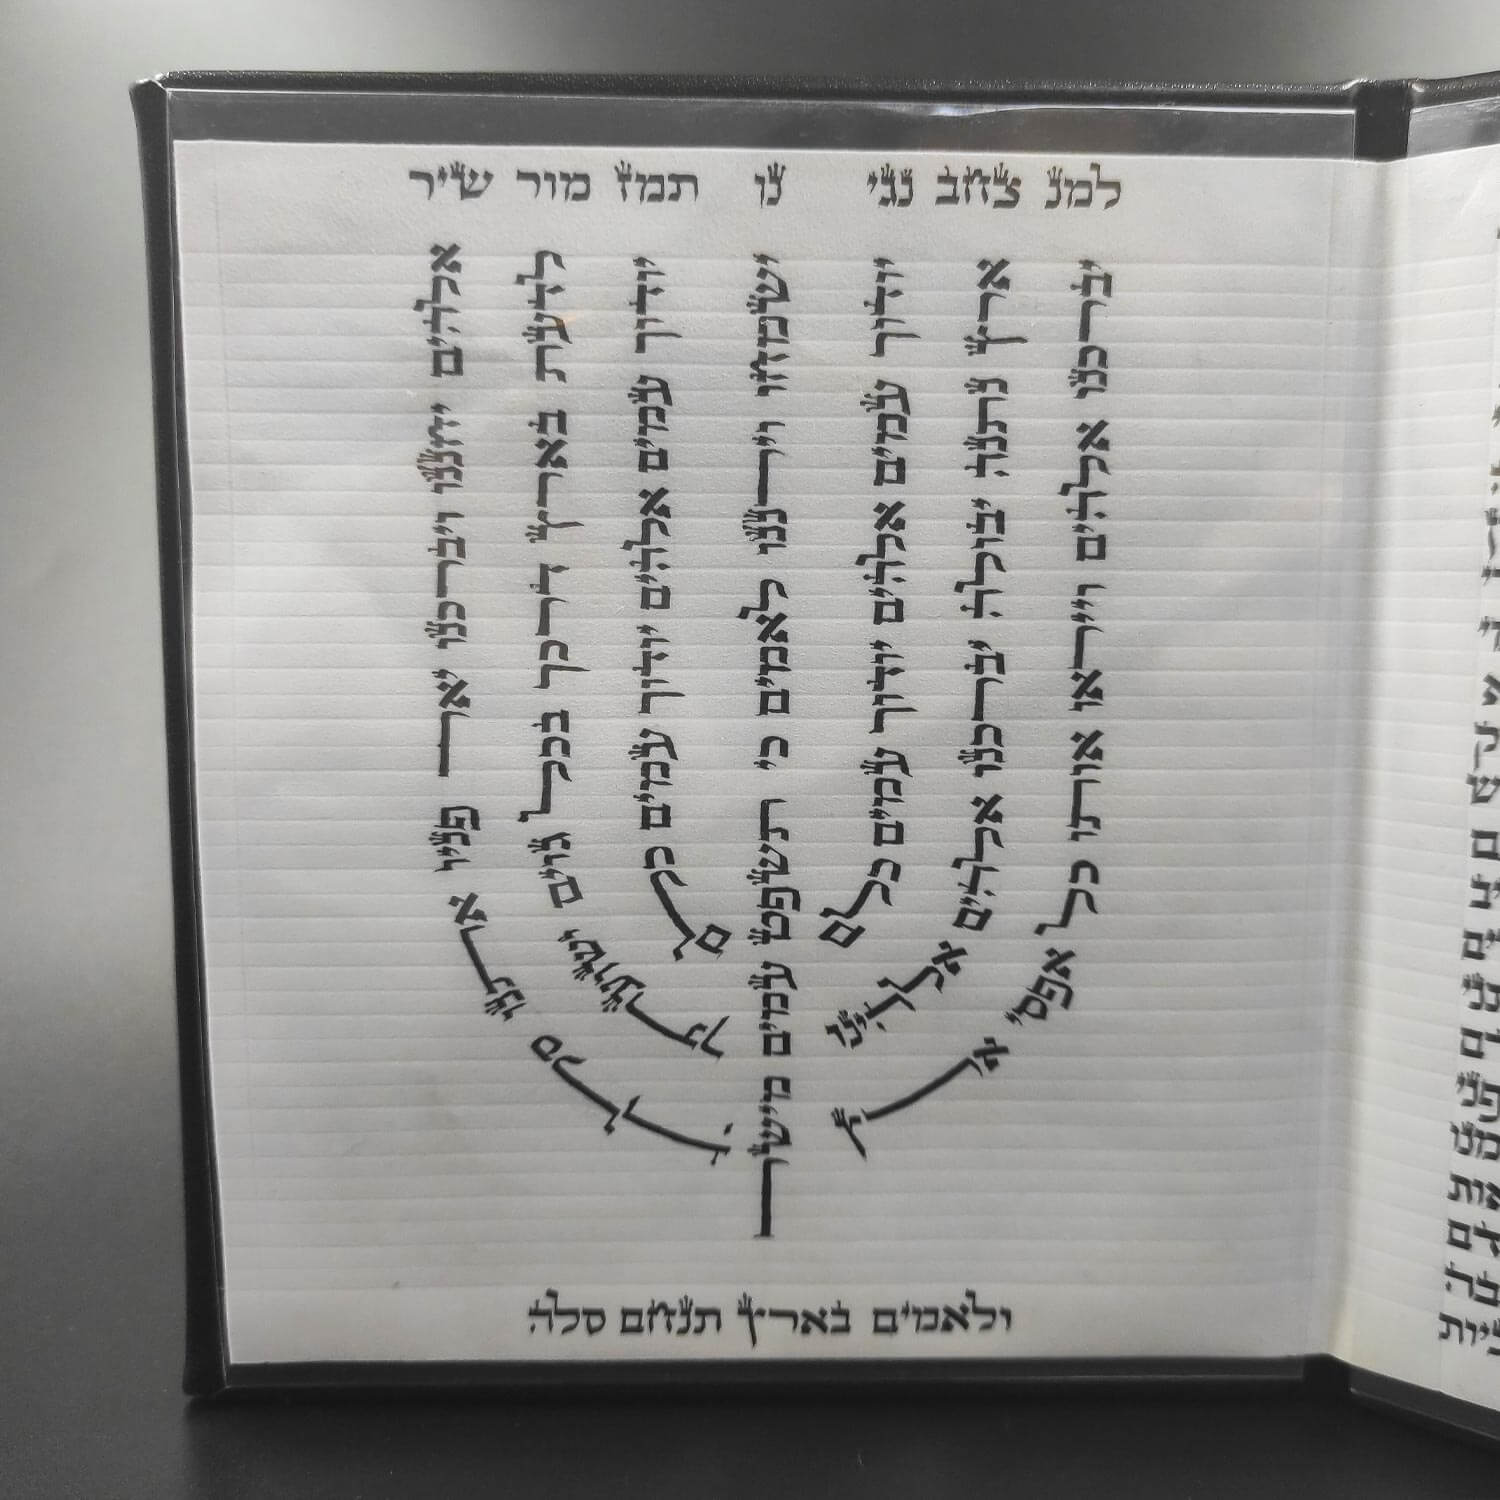 למנ צחב נגי נו תמז מור שיר
אלהים יחננו ויברכנו יאר פניו אתנו סלה
לדעת בארץ דרכך בכל גוים ישועתך
יודוך עמים אלהים יודוך עמים כלם
ישמחו וירננו לאמים כי תשפט עמים מישור
יודוך עמים אלהים יודוך עמים כלם
ארץ נתנה יבולה יברכנו אלהים אלהינו
יברכנו אלהים וייראו אותו כל אפסי ארץ
ולאמים בארץ תנחם סלה